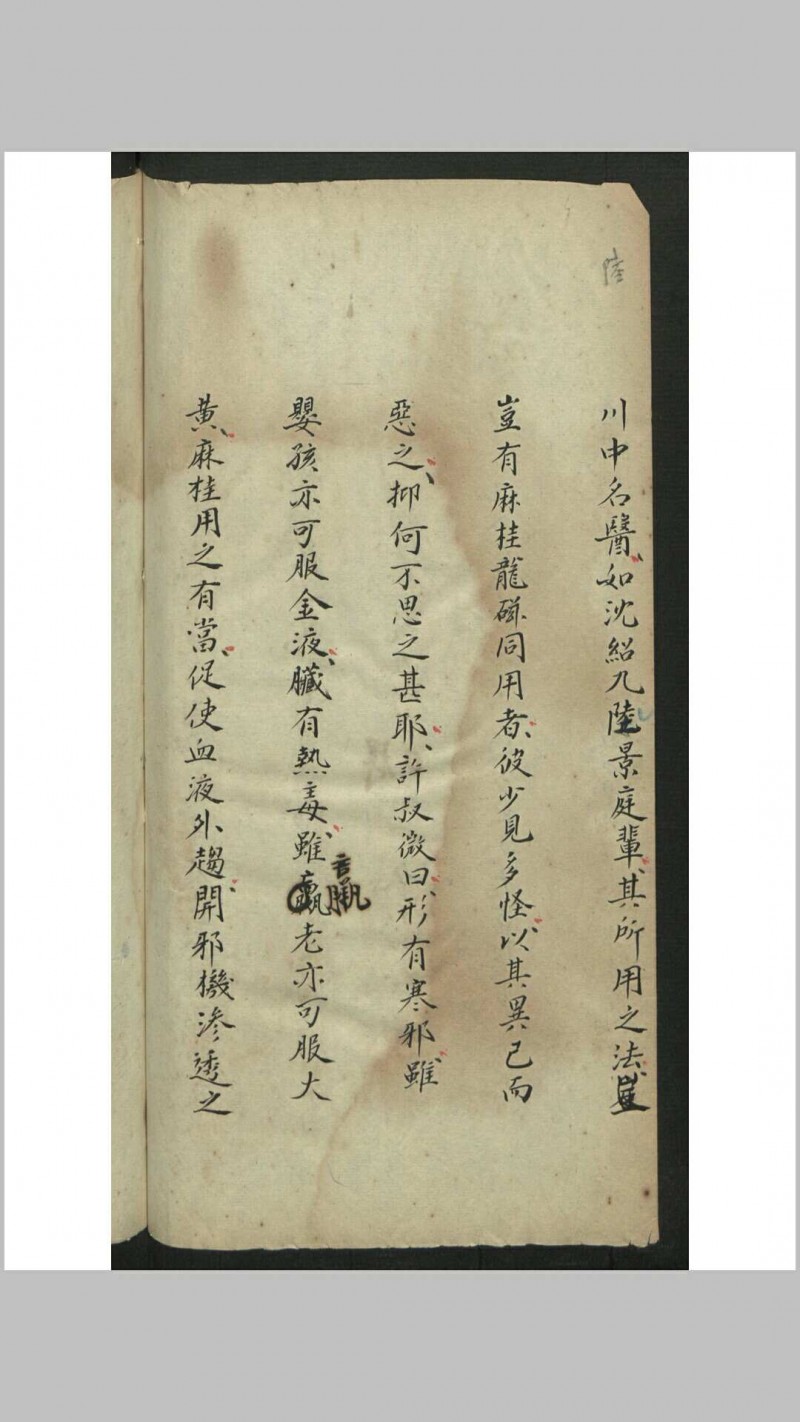 陸
川中名醫、如沈紹九陸景庭輩、其所用之法、豈
豈有麻桂龍磁同用者、彼少見多怪、以其異己而
惡之、抑何不思之甚耶、許叔微曰、形有寒邪、雖
嬰孩亦可服金液、臟有熱毒、雖羸老亦可服大
羸
黄、麻桂用之有當、促使血液外趨、開邪機滲透之